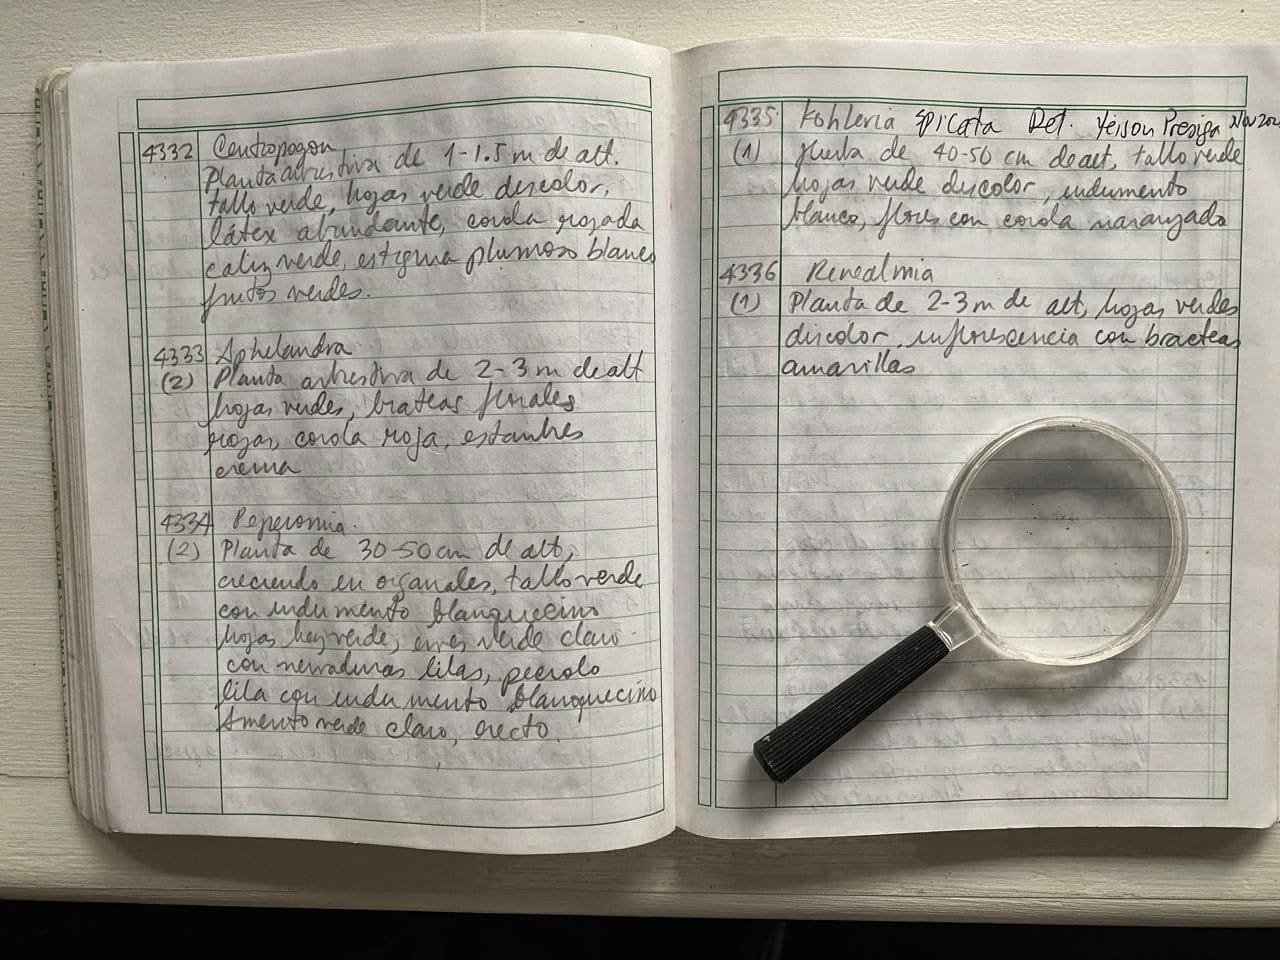 4332 Centropogon
Planta arbustiva de 1-1.5 m de alt.
tallo verde, hojas verde discolor,
látex abundante, corola rojada
caliz verde, estigma plumoso blanco
frutos verdes.
4333 Aphelandra
(2) Planta arbustiva de 2-3 m de alt
hojas verdes, brateas florales
rojas, corola roja, estambres
crema
4334 Peperomia.
(2) Planta de 30-50 cm de alt,
creciendo en organales, tallo verde
con indumento blanquecino
hojas haz verde, enves verde claro
con nervaduras lilas, peciolo
lila con indumento blanquecino
Amento verde claro, erecto.
4335 Kohleria spicata Det. Yeison Presiga Nov 202
(1) Hierba de 40-50 cm de alt, tallo verde
hojas verde discolor, indumento
blanco, flores con corola naranjada
4336 Renealmia
(1) Planta de 2-3 m de alt, hojas verdes
discolor, inflorescencia con bracteas
amarillas